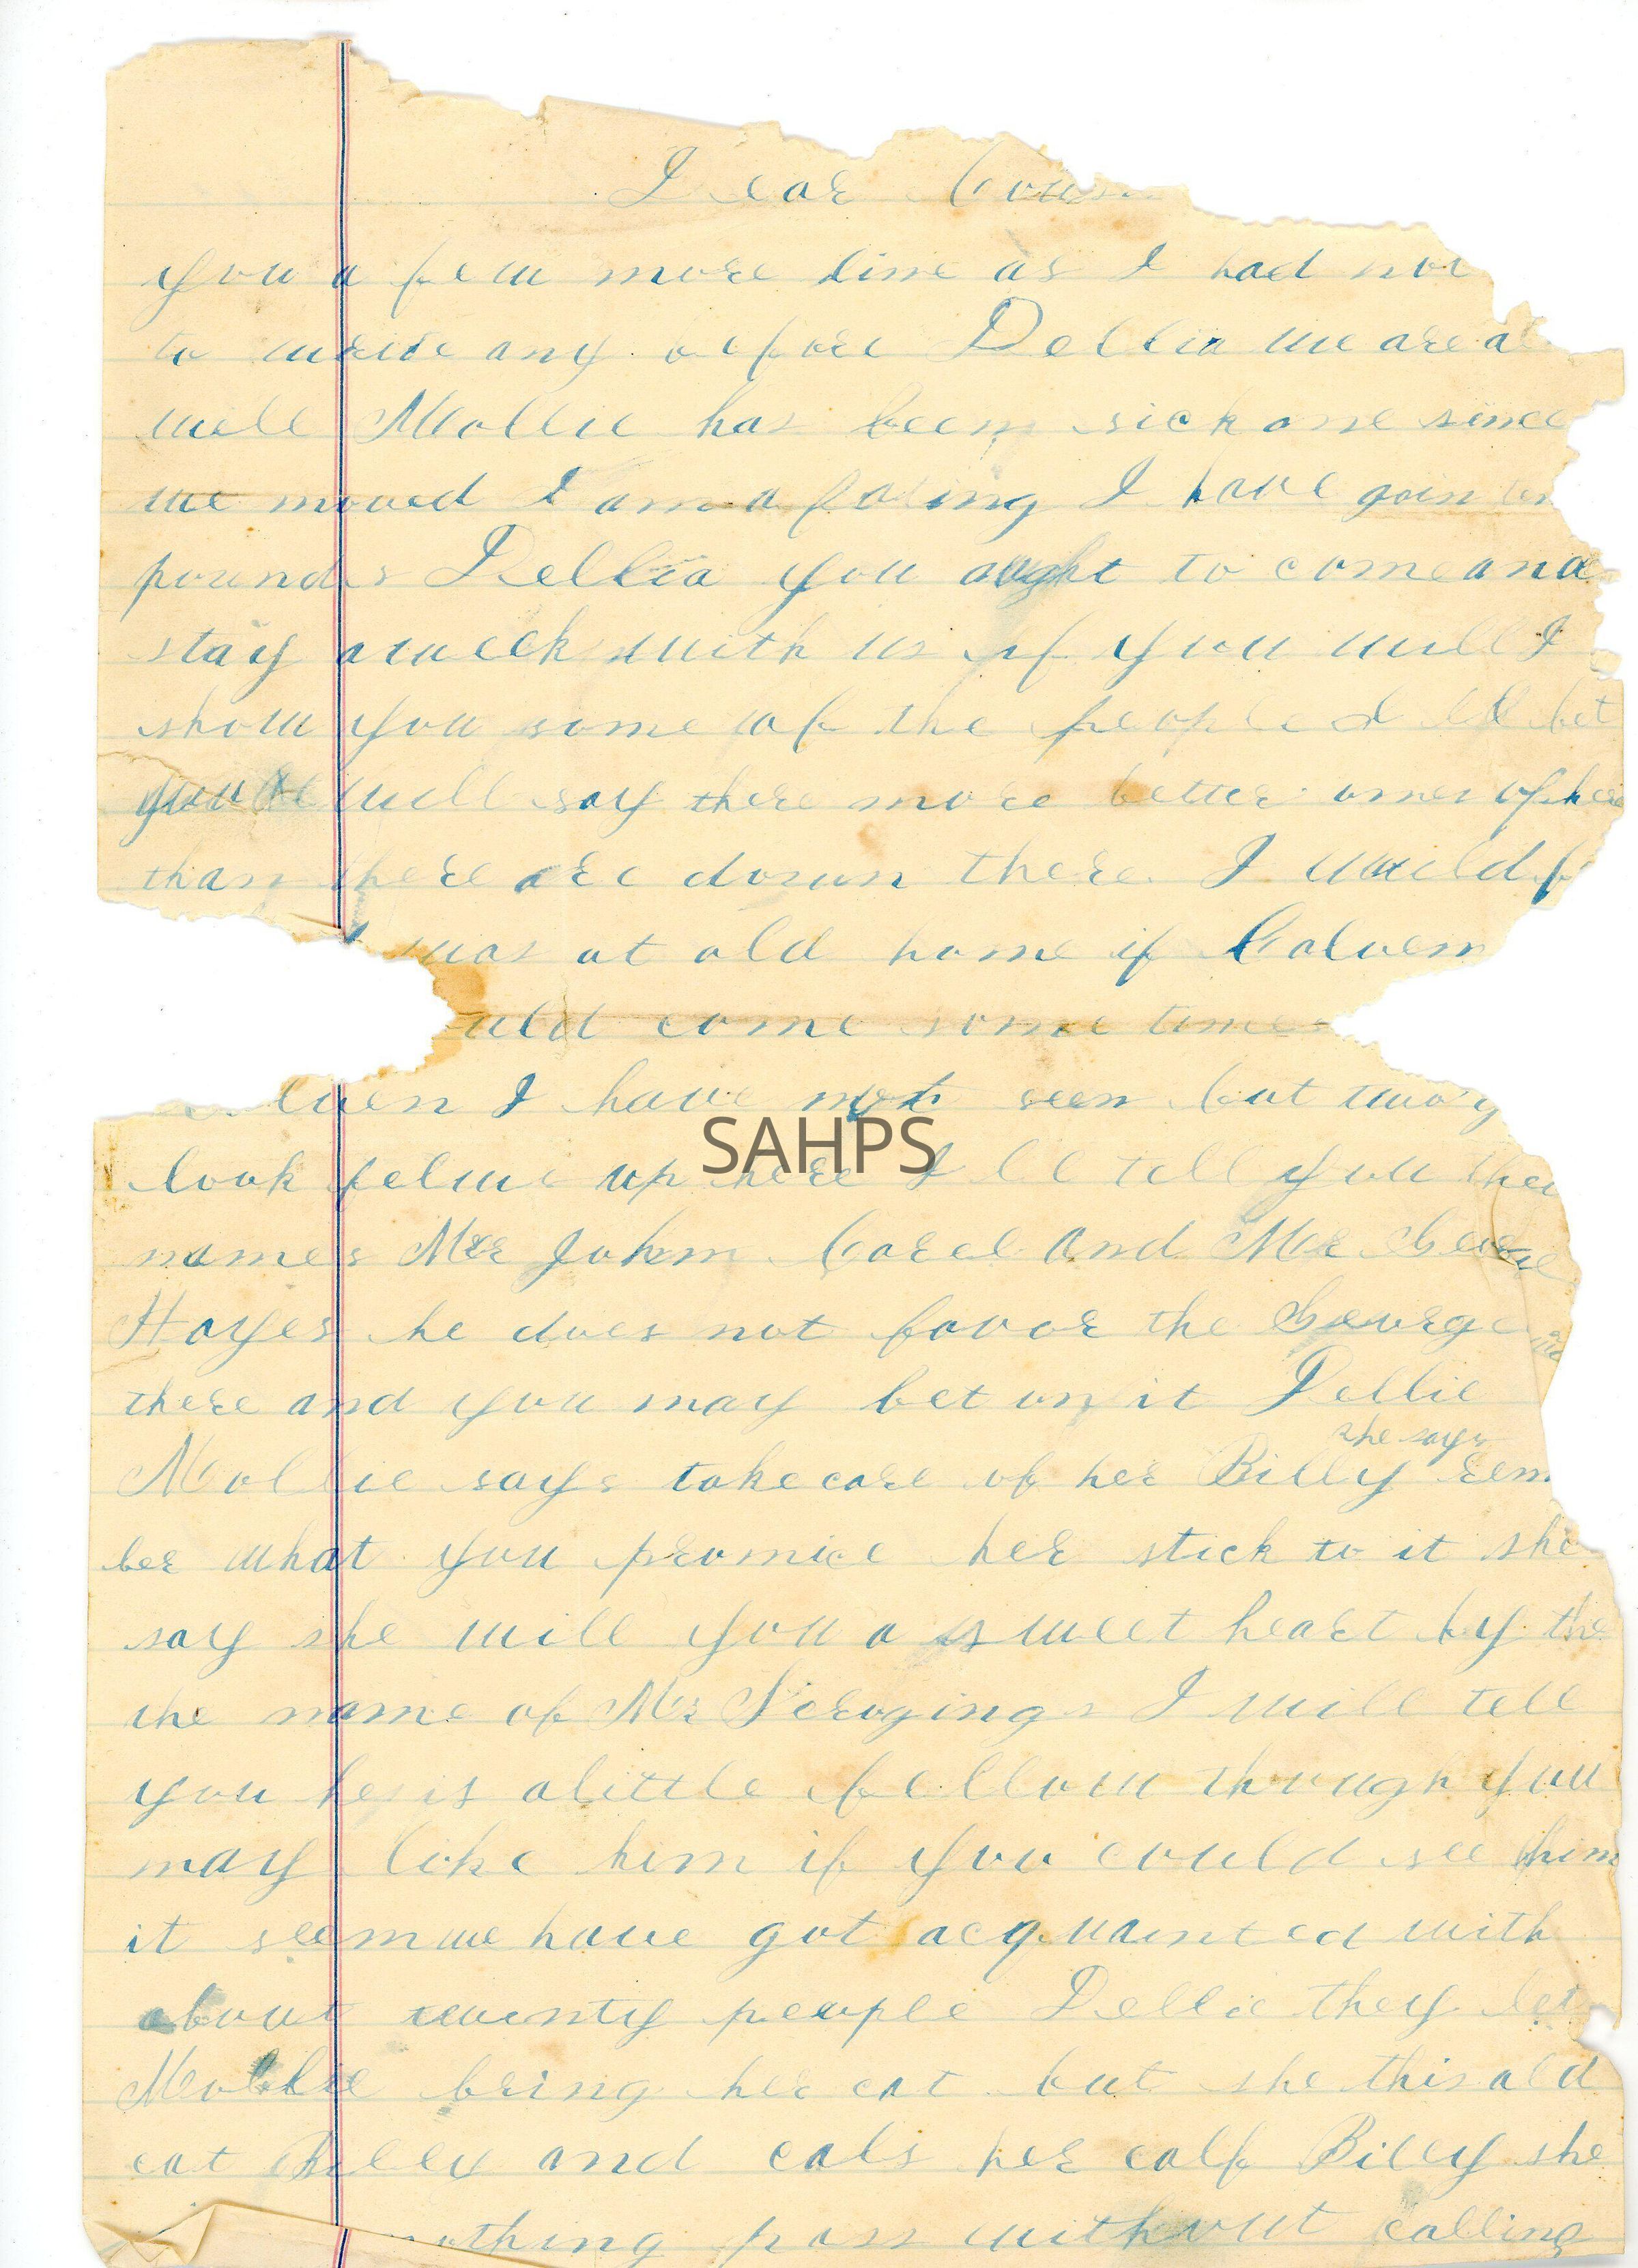 Dear
you a few more line as I had
to write any before Dellia we are
well Mollie has been sick one since
we moved I am a fating I have goin
pounds Dellia you ought to come and
stay a week with us if you will I
show you some of the people I ll bet
you will say there more better ones up here
than there are down there I would
was at old home if Calven
come some time
I have not seen but two
look felwe up here I ll tell you
names Mr John Carel and Mr
Hayes he does not favor the George
there and you may bet on it Dellie
she says
Mollie says take care of her Billy
ber what you promice her stick to it she
say she will you a sweet heart by the
the name of Mr I will tell
you he is a little fellow though you
may like him if you could see him
it seem we have got acquainted with
about twenty people Dellie they let
Mollie bring her cat but she this old
cat Billy and cals her calf Billy she
pass without calling
SAHPS